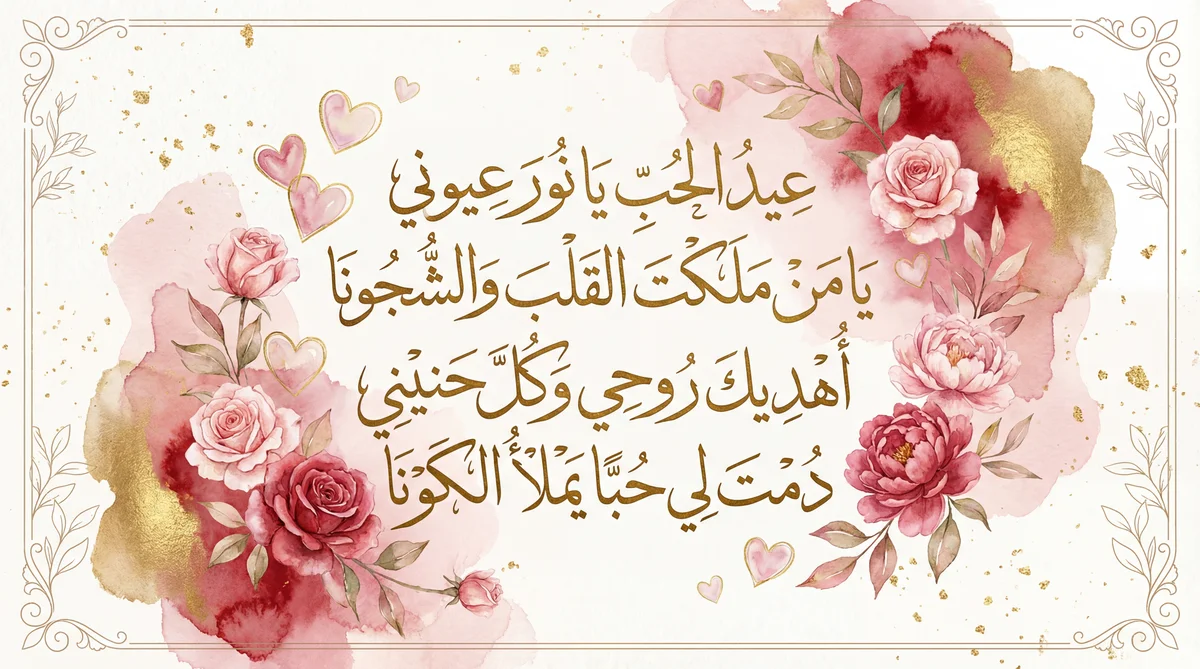 عِيدُ الحُبِّ يَا نُورَ عِيوني
يَا مَنْ مَلَكْتَ القَلْبَ وَالشُّجُونَا
أُهْدِيكَ رُوحِي وَكُلَّ حَنيْنِي
دُمْتَ لِي حُبًّا يَمْلَأُ الكَوْنَا